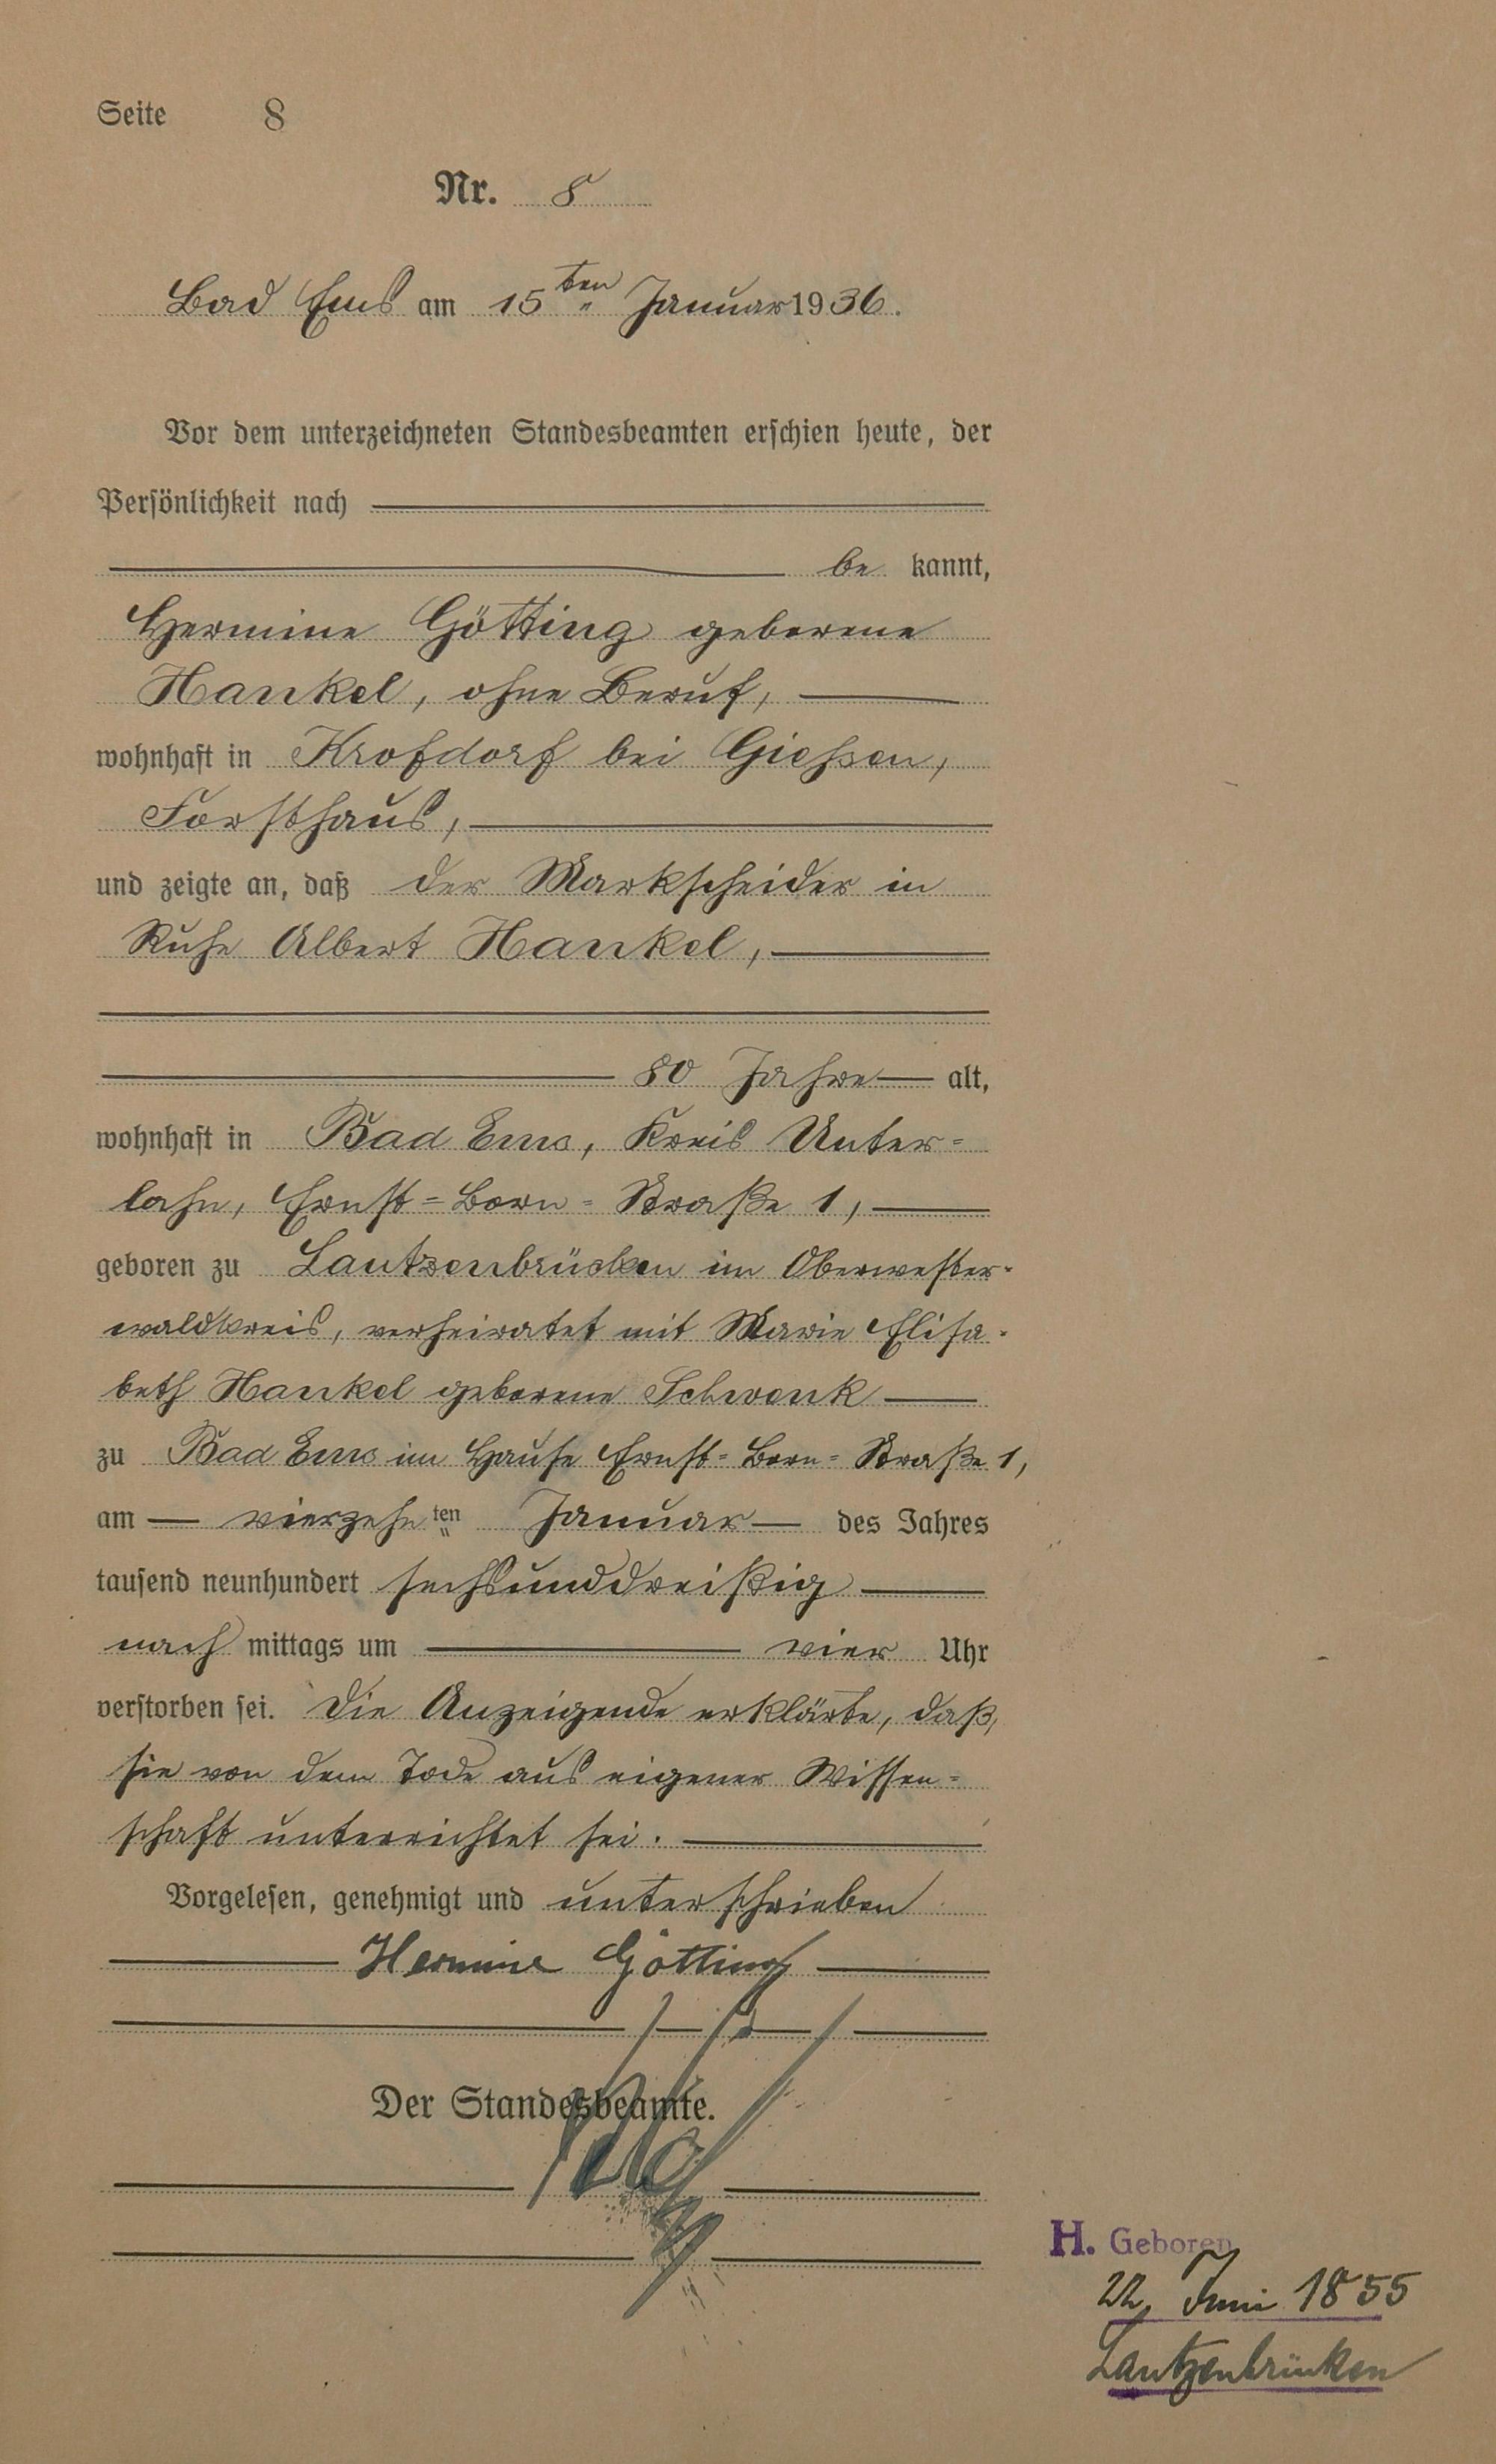 Seite 8
Nr. 8
Bad Ems am 15ten Januar 1936.
Vor dem unterzeichneten Standesbeamten erschien heute, der
Persönlichkeit nach
be kannt,
Hermine Götting geborene
Hankel, ohne Beruf,
wohnhaft in Krofdorf bei Giessen,
Forsthaus,
und zeigte an, daß der Markscheider in
Ruhe Albert Hankel,
80 Jahre alt,
wohnhaft in Bad Ems, Kreis Unter=
lahn, Ernst=Born=Straße 1,
geboren zu Lautzenbrücken im Oberwester=
waldkreis, verheiratet mit Marie Elisa=
beth Hankel geborene Schwenk
zu Bad Ems im Hause Ernst=Born=Straße 1,
am vierzehnten Januar des Jahres
tausend neunhundert sechsunddreißig
nach mittags um vier Uhr
verstorben sei. Die Anzeigende erklärte, daß
sie von dem Tode aus eigener Wissen=
schaft unterrichtet sei.
Vorgelesen, genehmigt und unterschrieben
Hermine Götting
Der Standesbeamte.
H. Geboren
22. Juni 1855
Lautzenbrücken